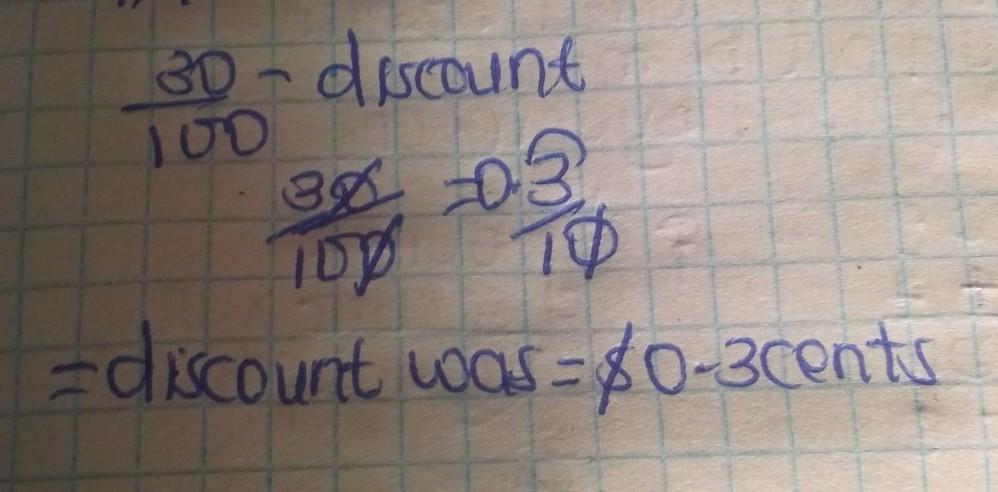 30 - discount
100
30 = 0.3
100 10
= discount was = $0-3cents